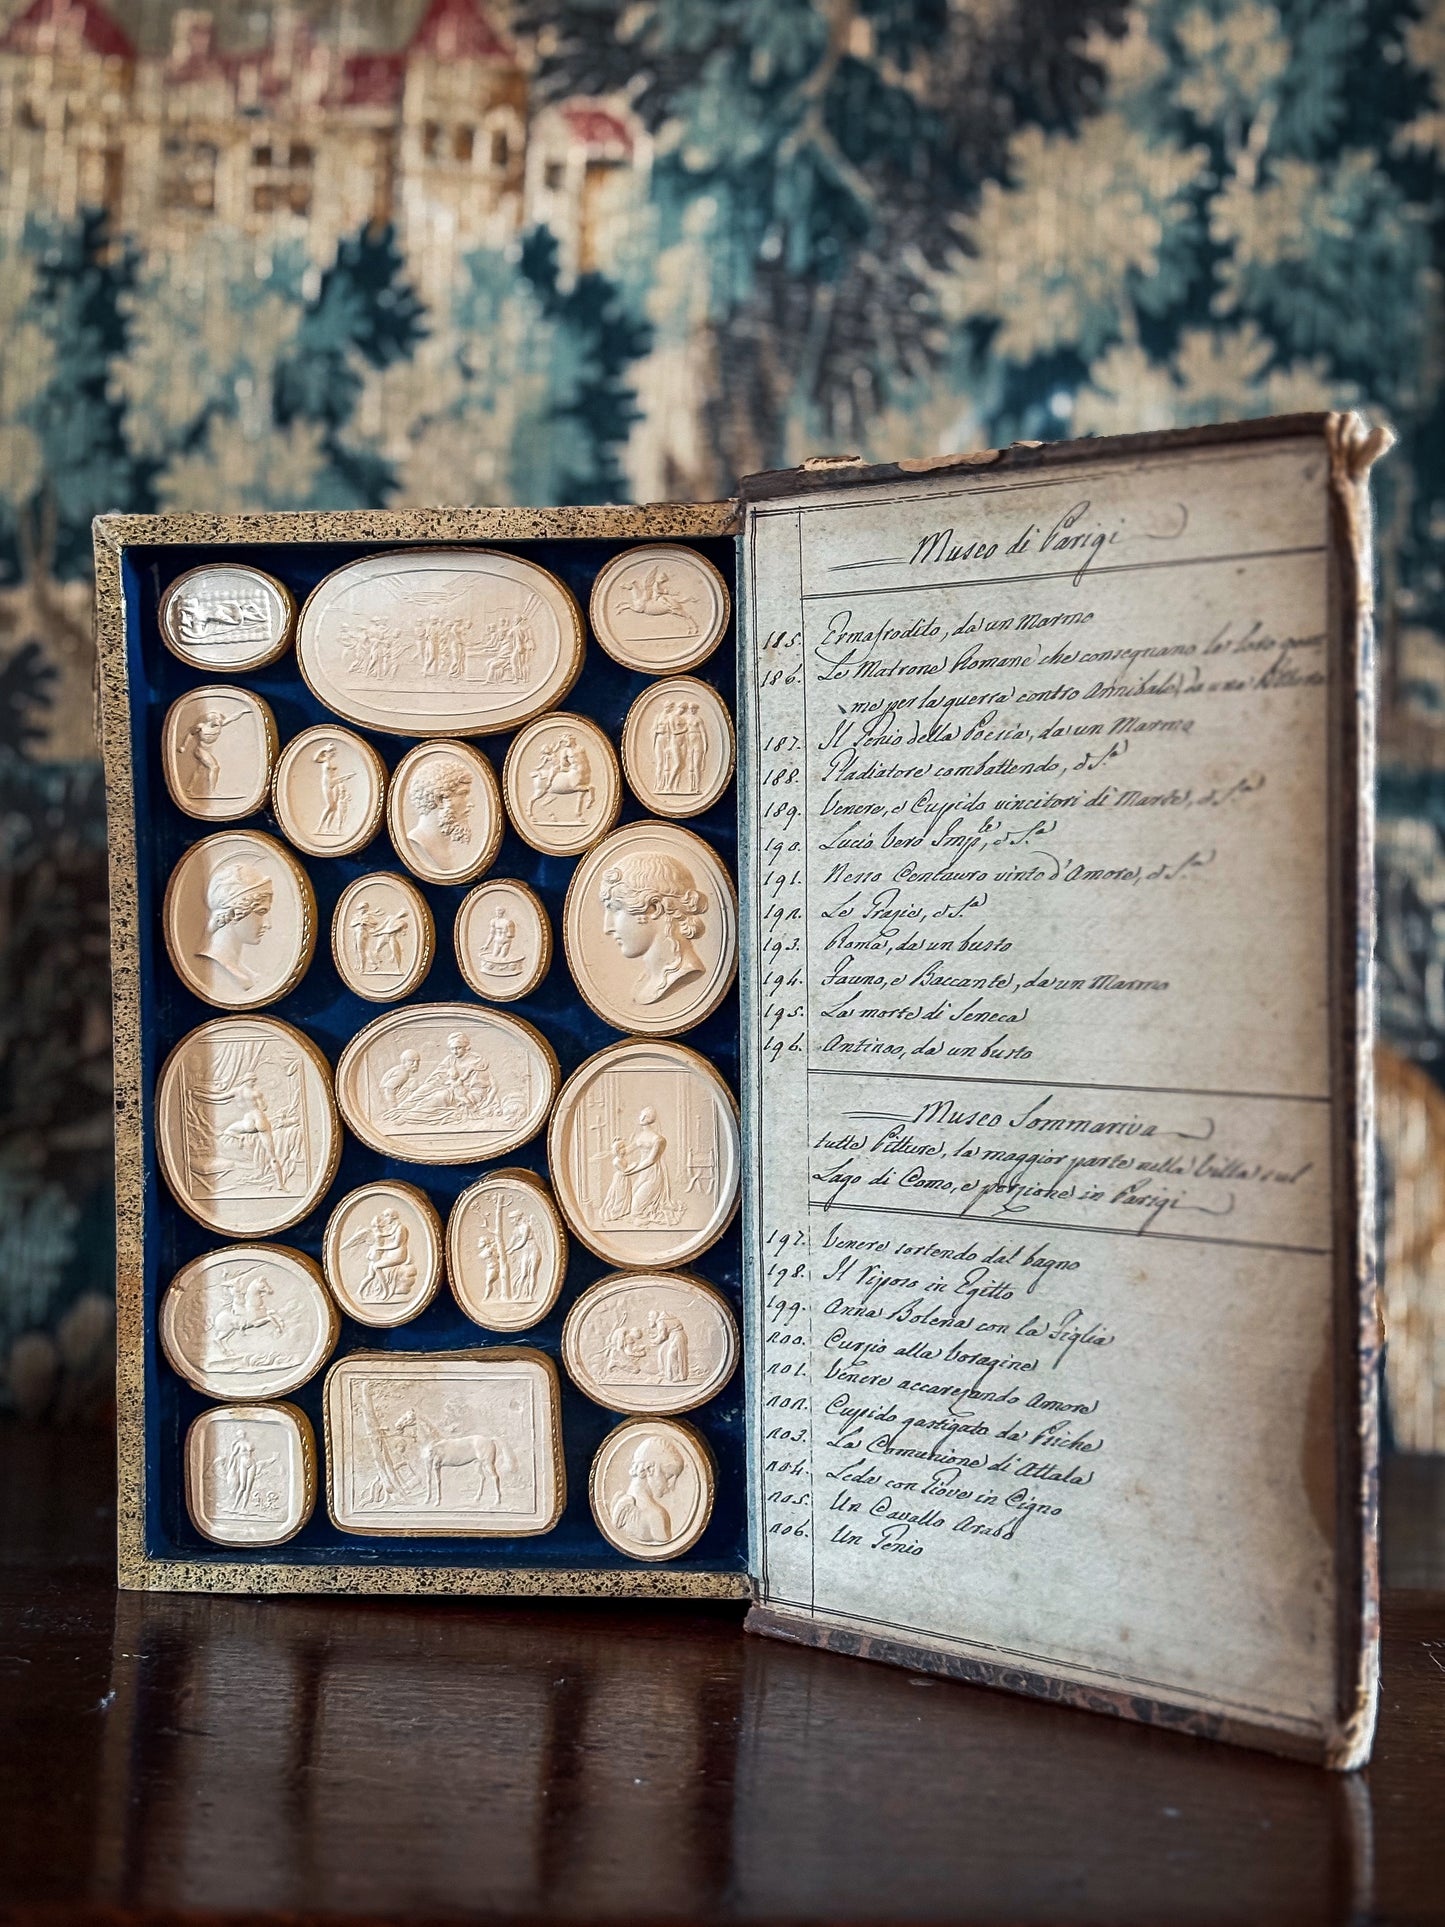 Museo di Parigi
185. Ermafrodito, da un Marmo
186. Le Matrone Romane che consegnano le loro gem
me per la guerra contro Annibale, da una Pittura
187. Il Genio della Poesia, da un Marmo
188. Gladiatore combattendo, d.º S.ª
189. Venere, e Cupido vincitori di Marte, d.º S.ª
190. Lucio Vero Imp.re, d.º S.ª
191. Nesso Centauro vinto d'Amore, d.º S.ª
192. Le Grazie, d.º S.ª
193. Roma, da un busto
194. Fauno, e Baccante, da un Marmo
195. La morte di Seneca
196. Antinoo, da un busto
Museo Sommariva
tutte Pitture, la maggior parte nella Villa sul
Lago di Como, e porzione in Parigi
197. Venere sortendo dal bagno
198. Il Riposo in Egitto
199. Anna Bolena con la Figlia
200. Curzio alla voragine
201. Venere accarezando Amore
202. Cupido gastigato da Psiche
203. La Comunione di Attala
204. Leda con Giove in Cigno
205. Un Cavallo Arabo
206. Un Genio